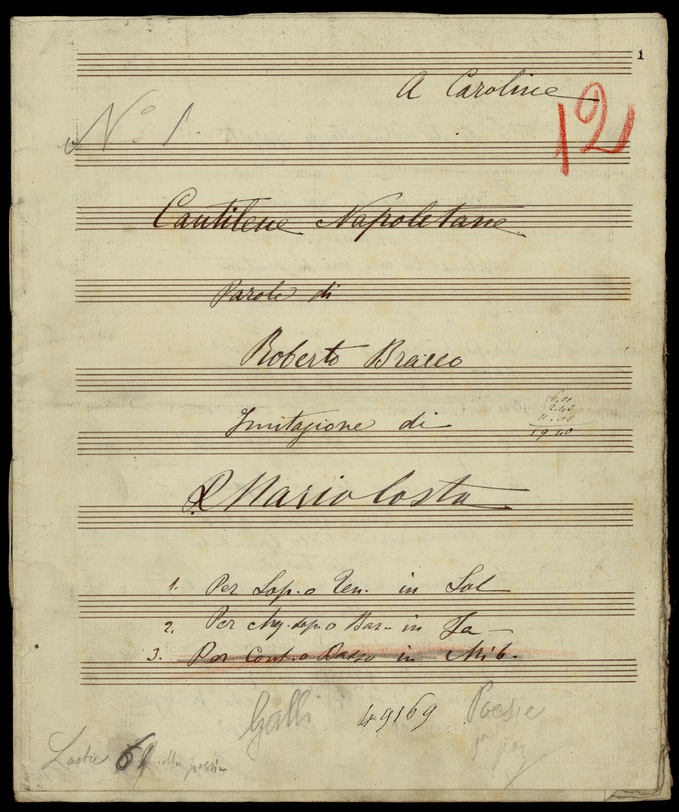 1
A Caroline
No 1.
12
Cantilene Napoletane
Parole di
Roberto Bracco
Imitazione di
P Mario Costa
19.40
1. Per Sop. o Ten. in Sol
2. Per Mez. sop. o Bar. in Fa
3. Per Cont. o Basso in Mib.
Galli
49169
Poesie
Lastre 69 alla poesia